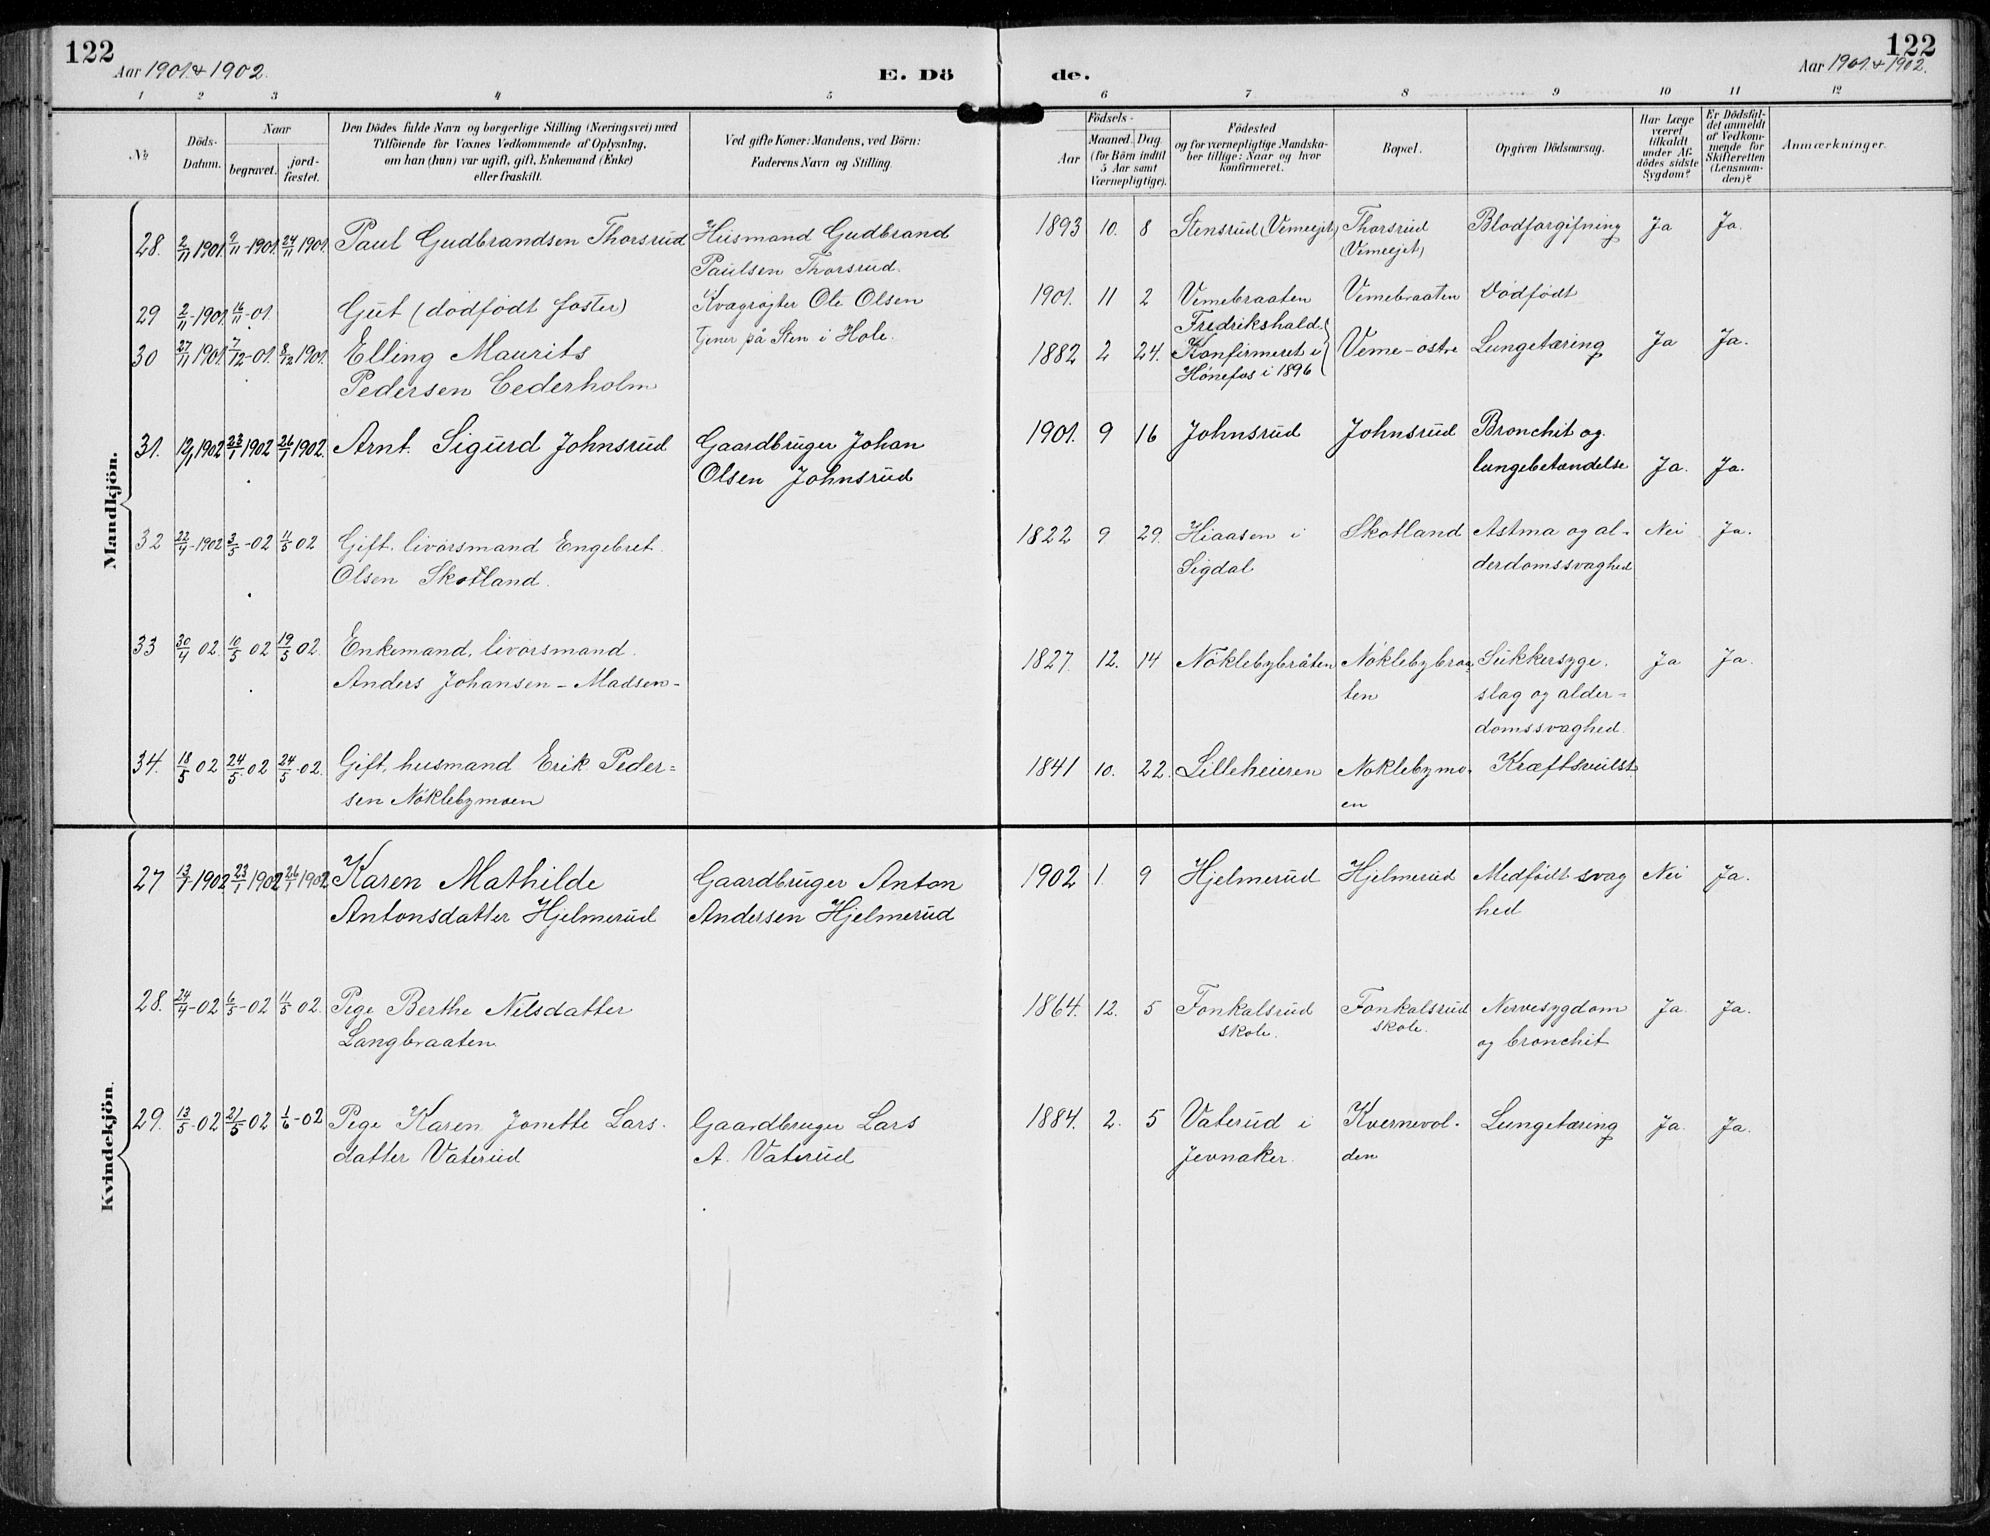 122
Aar 1901 & 1902.
E. Dö
de.
122
Aar 1901 & 1902.
1 2 3 4 5 6 7 8 9 10 11 12
No
Döds-
Datum.
Naar
begravet.
jord-
fæstet.
Den Dödes fulde Navn og borgerlige Stilling (Næringsvei) med
Tilföiende for Voxnes Vedkommende af Oplysning,
om han (hun) var ugift, gift, Enkemand (Enke)
eller fraskilt.
Ved gifte Koner: Mandens, ved Börn:
Faderens Navn og Stilling.
Födsels-
Aar
Maaned. Dag
(for Börn indtil
5 Aar samt
Værnepligtige).
Födested
og for værnepligtige Mandska-
ber tillige: Naar og hvor
konfirmeret.
Bopæl.
Opgiven Dödsaarsag.
Har Læge
været
tilkaldt
under Af-
dödes sidste
Sygdom?
Er Dödsfal-
det anmeldt
af Vedkom-
mende for
Skifteretten
(Lensman-
den)?
Anmærkninger.
Mandkjön.
28. 2/11 1901 9/11-1901 24/11 1901 Paul Gudbrandsen Thorsrud Husmand Gudbrand 1893 10. 8 Stensrud (Vemeejet) Thorsrud Blodforgifning Ja Ja.
Paulsen Thorsrud. (Vemeejet)
29 2/11-1901 16/11-01. Gut (dødfødt foster) Kvægrøjter Ole Olsen 1901. 11 2 Vemebraaten Vemebraaten Dødfødt
Tjener på Sten i Hole. Fredrikshald.
30 27/11 1901. 7/12-01. 8/12 1901. Elling Maurits 1882 2 24. Konfirmeret i Veme-østre Lungetæring Ja Ja.
Pedersen Cederholm Hønefos i 1896
31. 12/1 1902 23/1 1902 26/1 1902. Arnt Sigurd Johnsrud Gaardbruger Johan 1901. 9 16 Johnsrud Johnsrud Bronchit og
Olsen Johnsrud lungebetændelse Ja. Ja.
32 22/4-1902 3/5-02 11/5 02 Gift, livørsmand Engebret 1822 9 29. Hiaasen i Skotland Astma og al- Nei Ja.
Olsen Skotland. Sigdal derdomssvaghed
33 30/4 02. 10/5 02 19/5 02. Enkemand, livørsmand. 1827. 12. 14 Nøklebybråten Nøklebybraa- Sukkersyge, Ja Ja.
Anders Johansen-Madsen- ten slag og alder-
domssvaghed.
34. 18/5 02 24/5 02 24/5-02. Gift, husmand Erik Peder- 1841 10. 22. Lilleheieren Nøklebymo- Kræftsvulst
sen Nøklebymoen en
Kvindekjön.
27 13/1-1902 23/1 1902 26/1 1902 Karen Mathilde Gaardbruger Anton 1902 1. 9 Hjelmerud Hjelmerud Medfødt svag Nei Ja.
Antonsdatter Hjelmerud Andersen Hjelmerud hed
28. 24/4-02 6/5-02 11/5 02. Pige Berthe Nilsdatter 1864. 12. 5 Fonkalsrud Fonkalsrud Nervesygdom Ja. Ja.
Langbraaten skole. skole. og bronchit
29. 13/5-02 21/5 02 1/6-02 Pige Karen Jonette Lars- Gaardbruger Lars 1884. 2. 5 Vaterud i Kvernevol- Lungetæring Ja. Ja.
datter Vaterud A. Vaterud Jevnaker. den